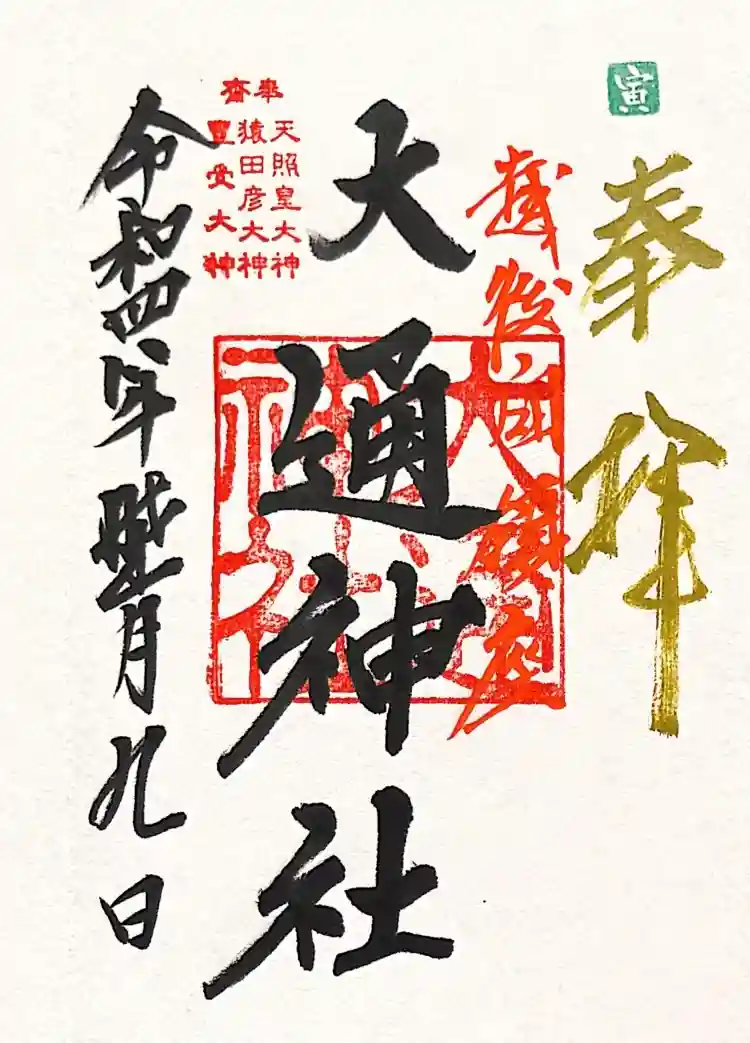 寅
奉拝
越後国鎮座
大通神社
奉齋
天照皇大神
猿田彦大神
豊受大神
令和四年睦月九日